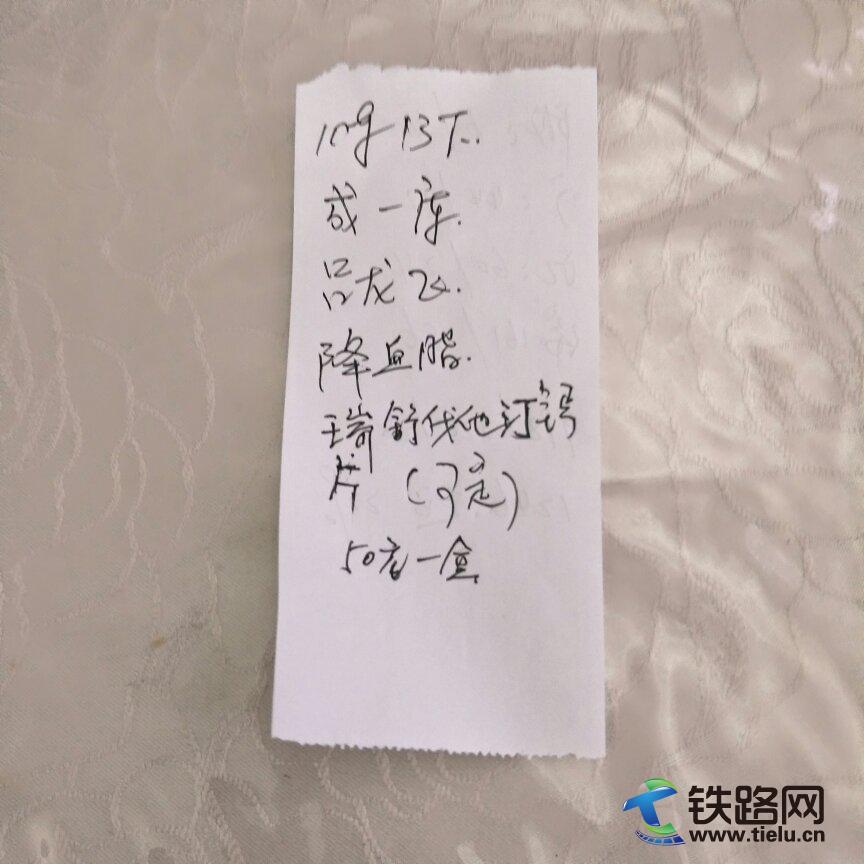 成一库.
吕龙飞.
降血脂.
瑞舒伐他汀钙
片 (可定)
50元一盒
铁路网
www.tielu.cn